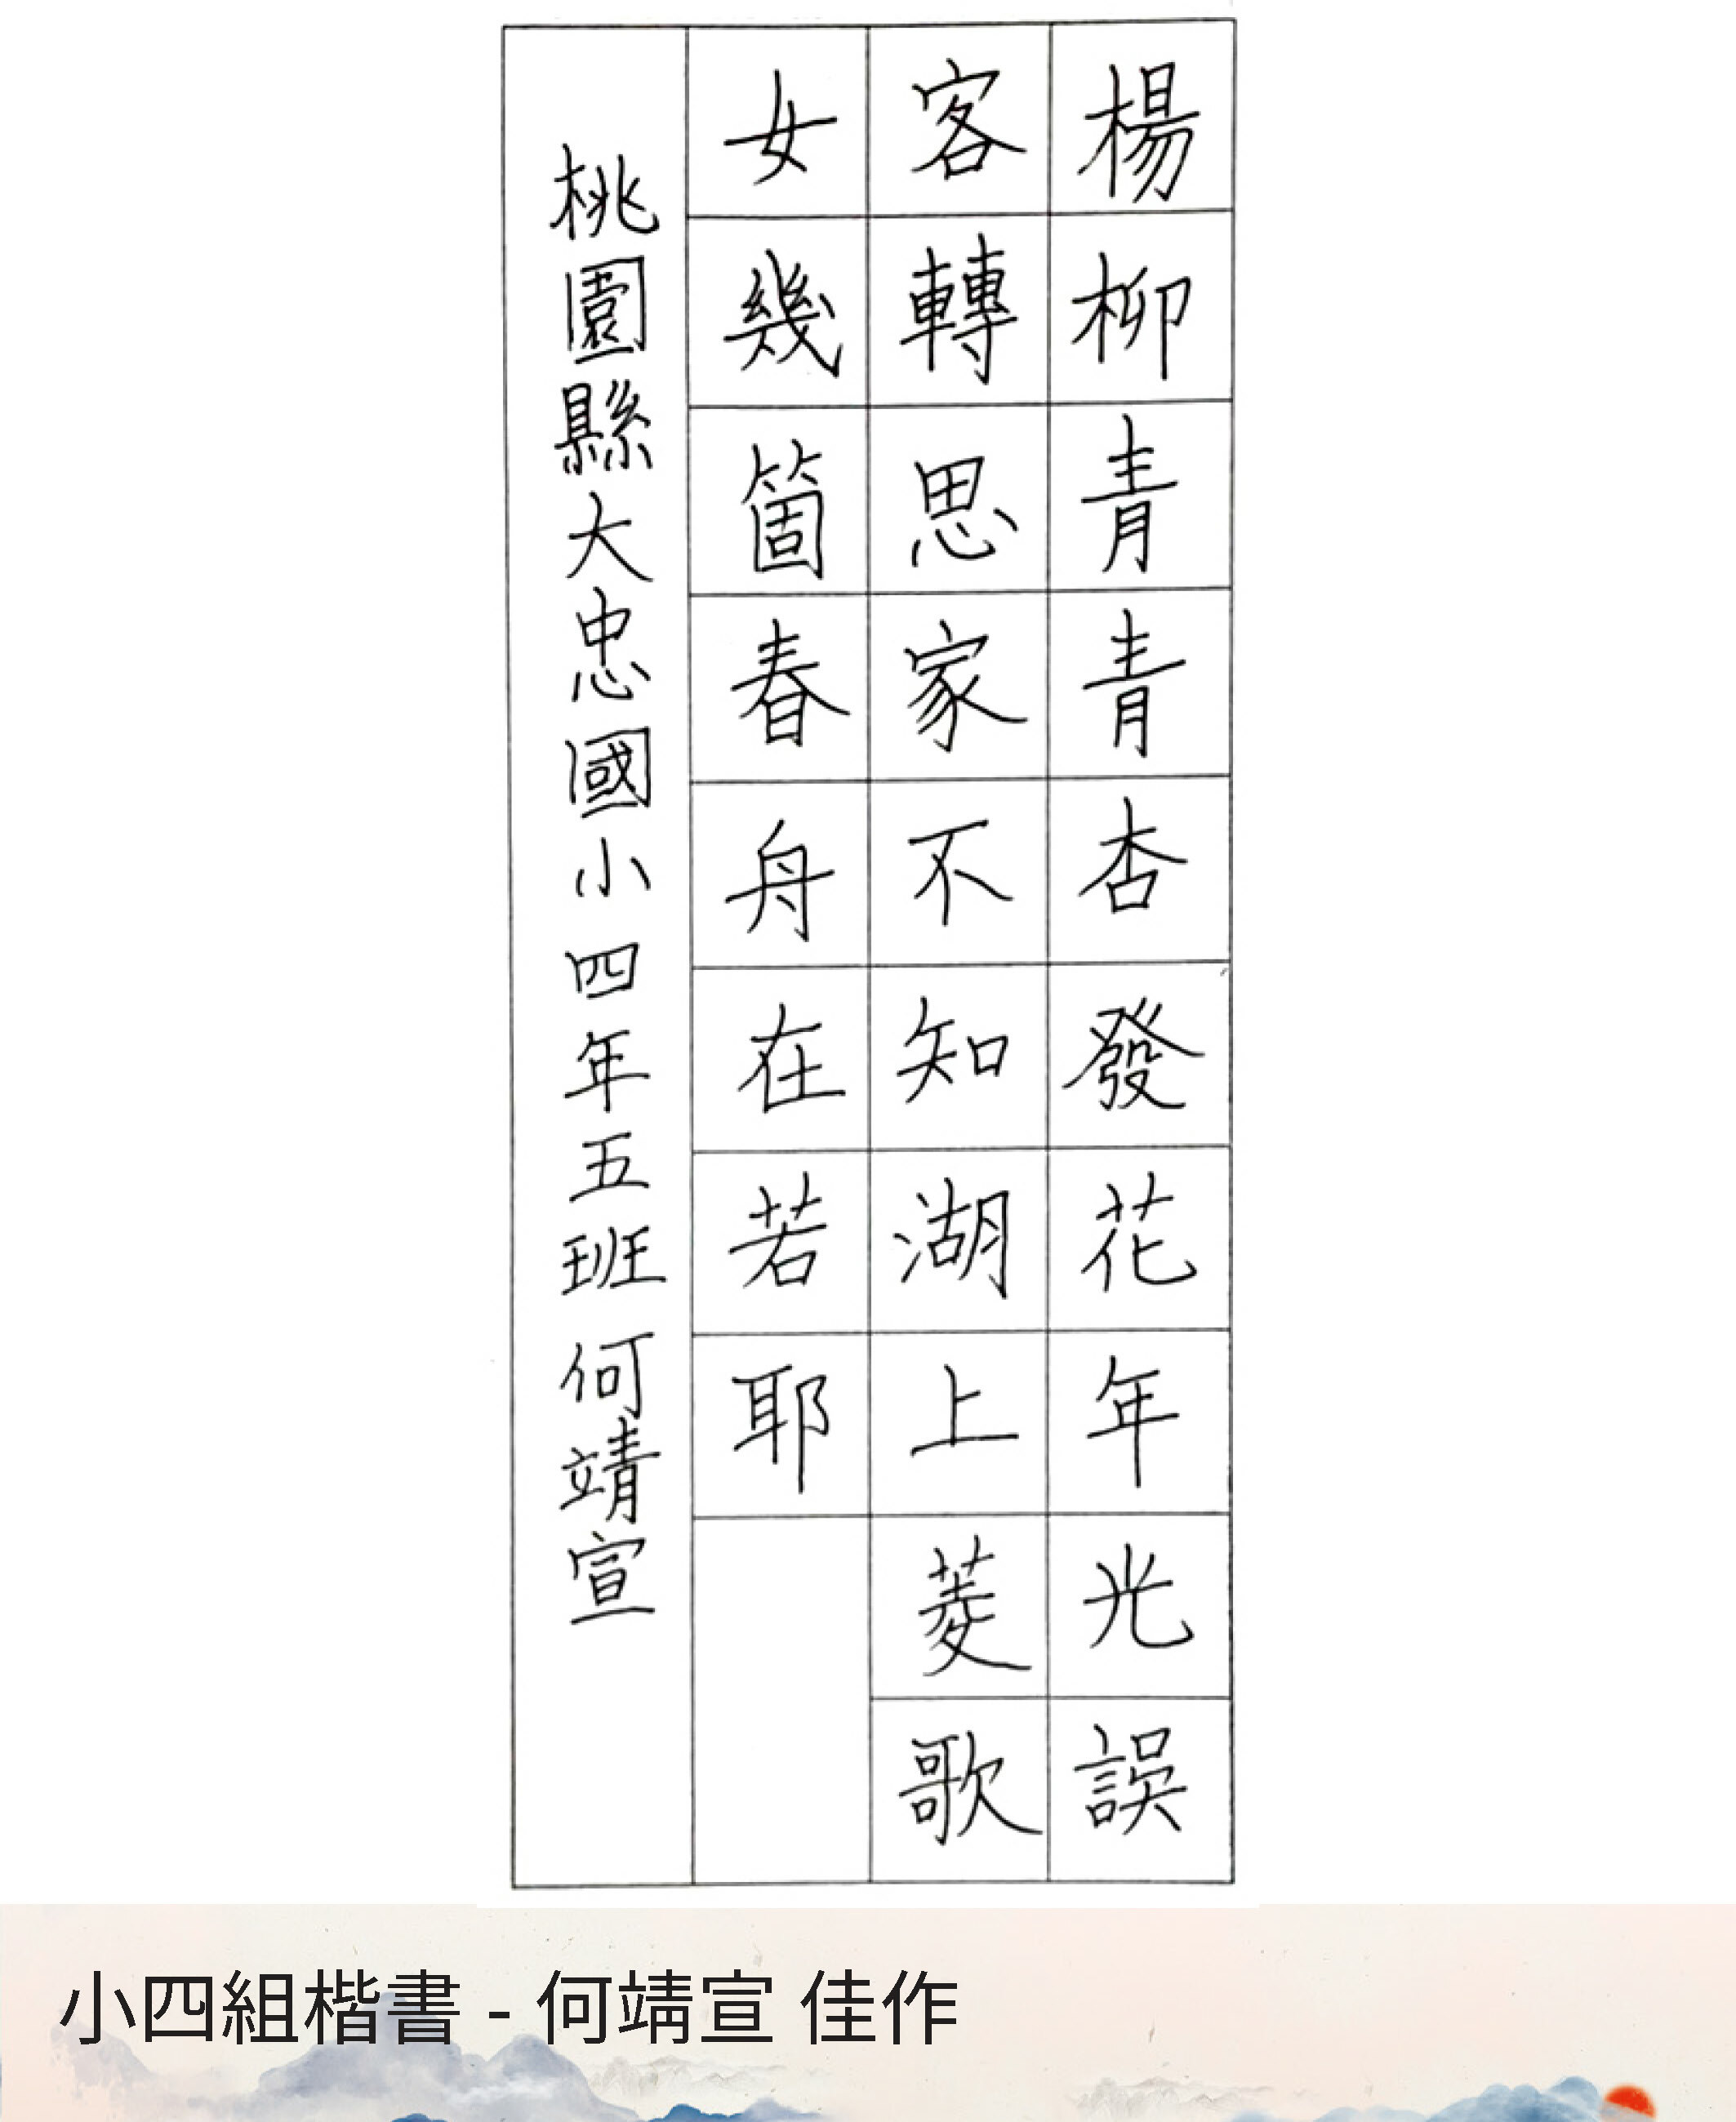 楊柳青青杏發花年光誤
客轉思家不知湖上菱歌
女幾箇春舟在若耶
桃園縣大忠國小四年五班何靖宣
小四組楷書 - 何靖宣 佳作